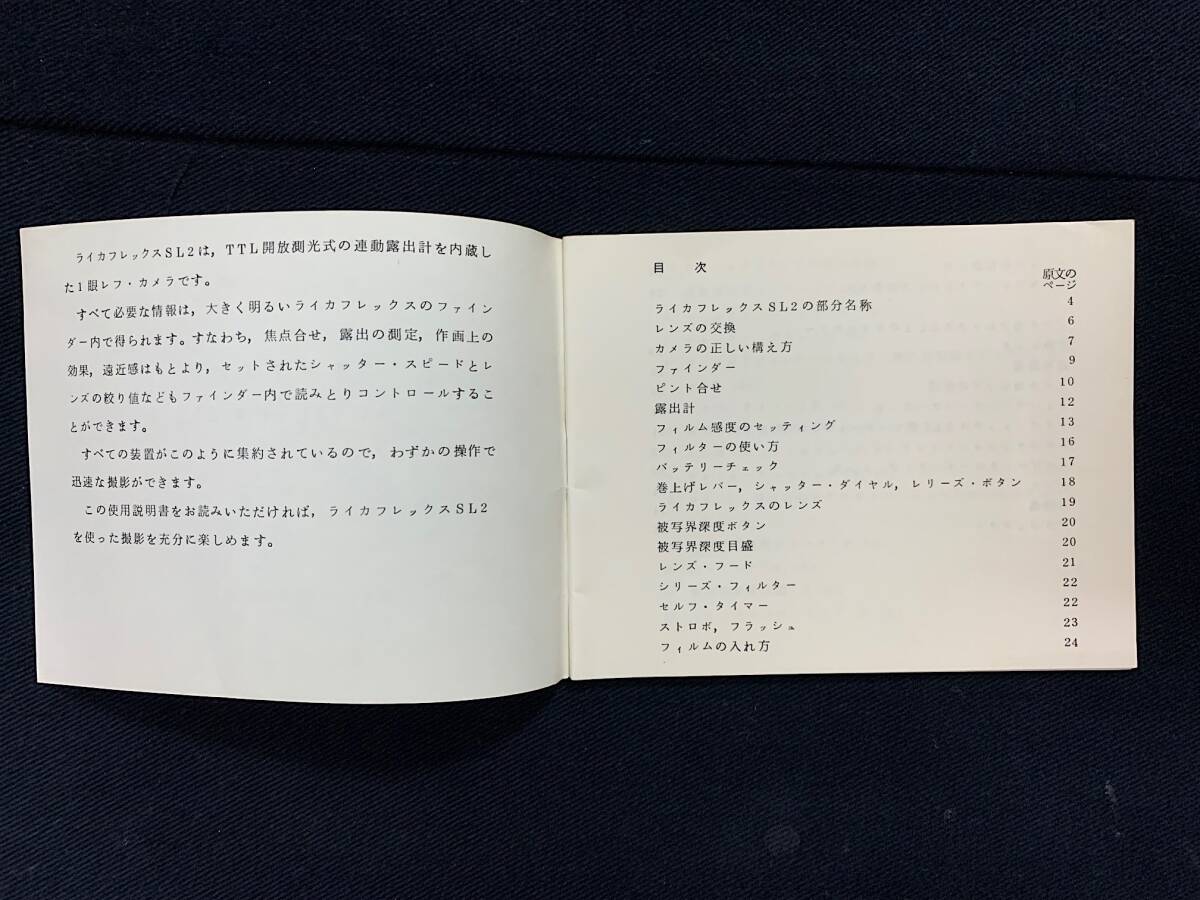 ライカフレックスSL2は，TTL開放測光式の連動露出計を内蔵し
た1眼レフ・カメラです。
すべて必要な情報は，大きく明るいライカフレックスのファイン
ダー内で得られます。すなわち，焦点合せ，露出の測定，作画上の
効果，遠近感はもとより，セットされたシャッター・スピードとレ
ンズの絞り値などもファインダー内で読みとりコントロールするこ
とができます。
すべての装置がこのように集約されているので，わずかの操作で
迅速な撮影ができます。
この使用説明書をお読みいただければ，ライカフレックスSL2
を使った撮影を充分に楽しめます。
目 次
原文の
ページ
ライカフレックスSL2の部分名称 4
レンズの交換 6
カメラの正しい構え方 7
ファインダー 9
ピント合せ 10
露出計 12
フィルム感度のセッティング 13
フィルターの使い方 16
バッテリーチェック 17
巻上げレバー，シャッター・ダイヤル，レリーズ・ボタン 18
ライカフレックスのレンズ 19
被写界深度ボタン 20
被写界深度目盛 20
レンズ・フード 21
シリーズ・フィルター 22
セルフ・タイマー 22
ストロボ，フラッシュ 23
フィルムの入れ方 24